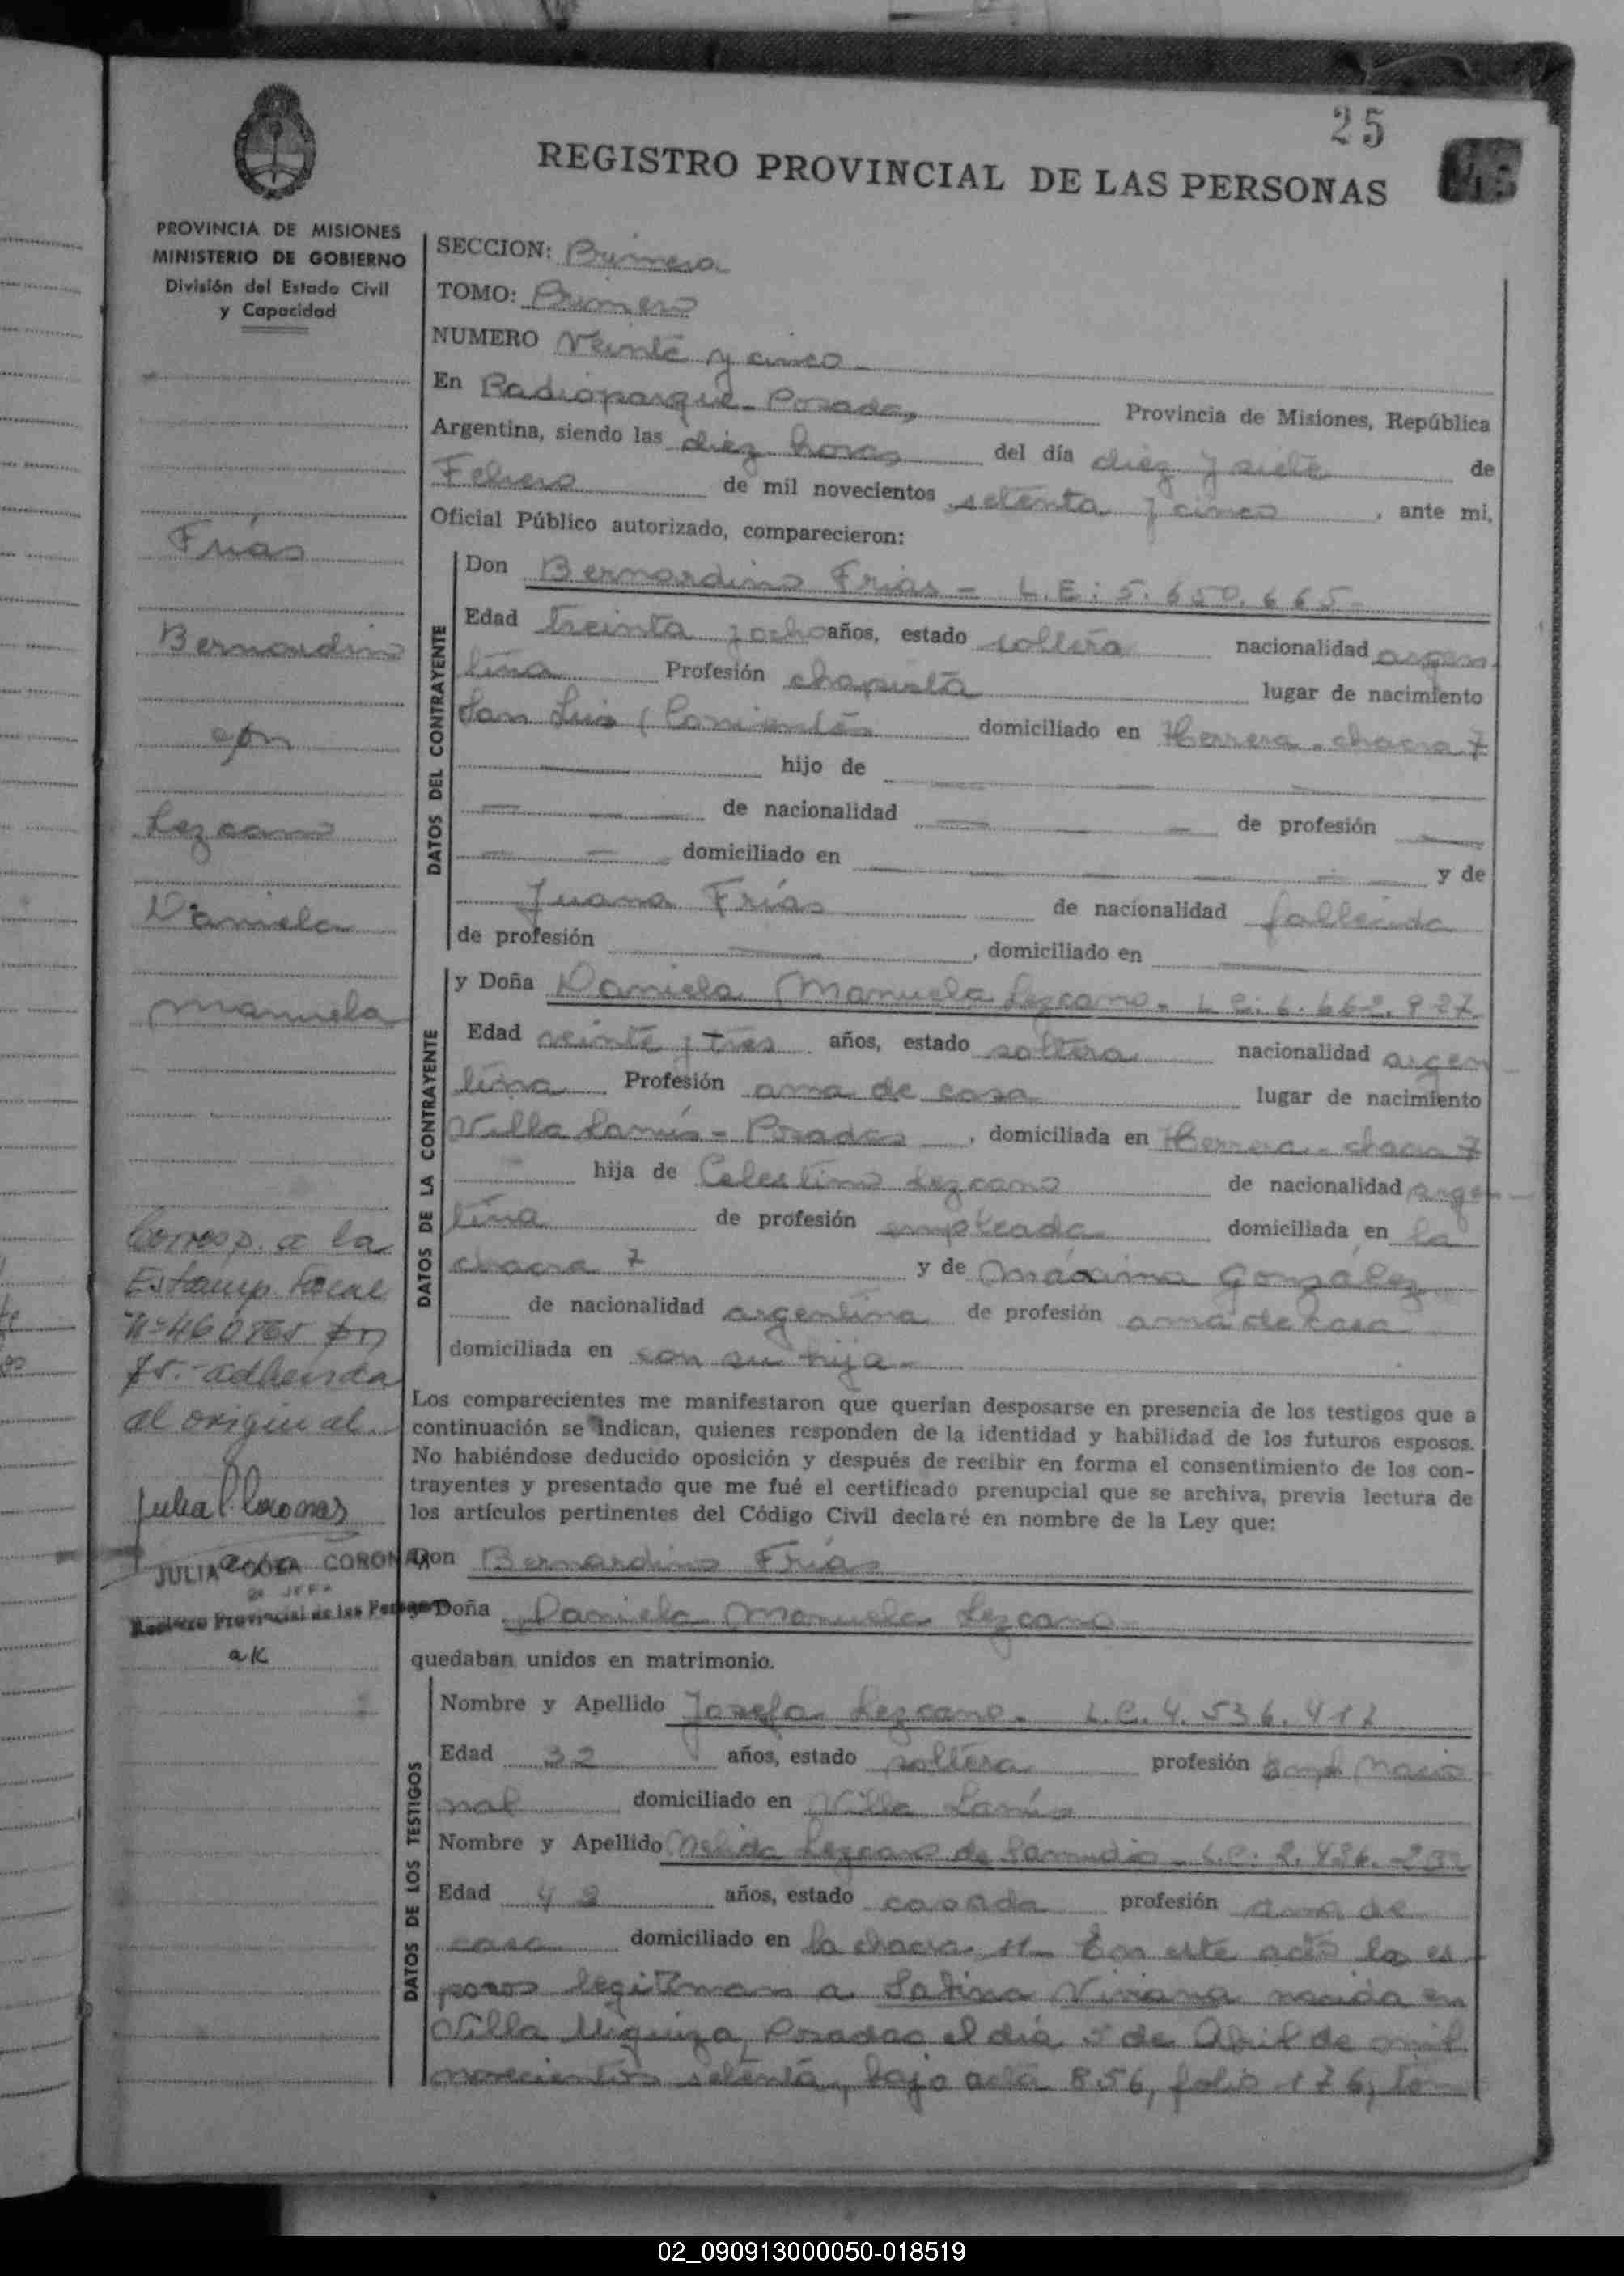 25
REGISTRO PROVINCIAL DE LAS PERSONAS
PROVINCIA DE MISIONES
MINISTERIO DE GOBIERNO
División del Estado Civil
y Capacidad
SECCION: Primera
TOMO: Primero
NUMERO Veinte y cinco
En Radioparque - Posadas, Provincia de Misiones, República
Argentina, siendo las diez horas del día diez y siete de
Febrero de mil novecientos setenta y cinco, ante mi,
Oficial Público autorizado, comparecieron:
Frias
Bernardino
con
Lezcano
Daniela
Manuela
DATOS DEL CONTRAYENTE
Don Bernardino Frias - L.E: 5.650.665-
Edad treinta y ocho años, estado soltero nacionalidad argen
tina Profesión chapista lugar de nacimiento
San Luis (Corrientes domiciliado en Herrera - chacra 7
hijo de
de nacionalidad de profesión
domiciliado en y de
Juana Frías de nacionalidad fallecida
de profesión , domiciliado en
DATOS DE LA CONTRAYENTE
y Doña Daniela Manuela Lezcano - L.C: 6.662.927
Edad veinte y tres años, estado soltera nacionalidad argen
tina Profesión ama de casa lugar de nacimiento
Villa Lanús - Posadas, domiciliada en Herrera - chacra 7
hija de Celestino Lezcano de nacionalidad argen
tina de profesión empleada domiciliada en la
chacra 7 y de Máxima González
de nacionalidad argentina de profesión ama de casa
domiciliada en con su hija -
Corresp. a la
Estamp. Fiscal
Nº 460865
75.- adherida
al original.
JULIA CORONA
DE JEFA
Registro Provincial de las Personas
aK
Los comparecientes me manifestaron que querían desposarse en presencia de los testigos que a
continuación se indican, quienes responden de la identidad y habilidad de los futuros esposos.
No habiéndose deducido oposición y después de recibir en forma el consentimiento de los con-
trayentes y presentado que me fué el certificado prenupcial que se archiva, previa lectura de
los artículos pertinentes del Código Civil declaré en nombre de la Ley que:
Don Bernardino Frías
y Doña Daniela Manuela Lezcano
quedaban unidos en matrimonio.
DATOS DE LOS TESTIGOS
Nombre y Apellido Josefa Lezcano - L.C. 4.536.412
Edad 32 años, estado soltera profesión emp. Nacio
nal domiciliado en Villa Lanús
Nombre y Apellido Nelida Lezcano de Samudio - L.C. 2.426.232
Edad 42 años, estado casada profesión ama de
casa domiciliado en la chacra 11 - En este acto los es
posos legitiman a Sabina Viviana nacida en
Villa Urquiza, Posadas el día 5 de Abril de mil
novecientos setenta, bajo acta 856, folio 176, to
02_090913000050-018519